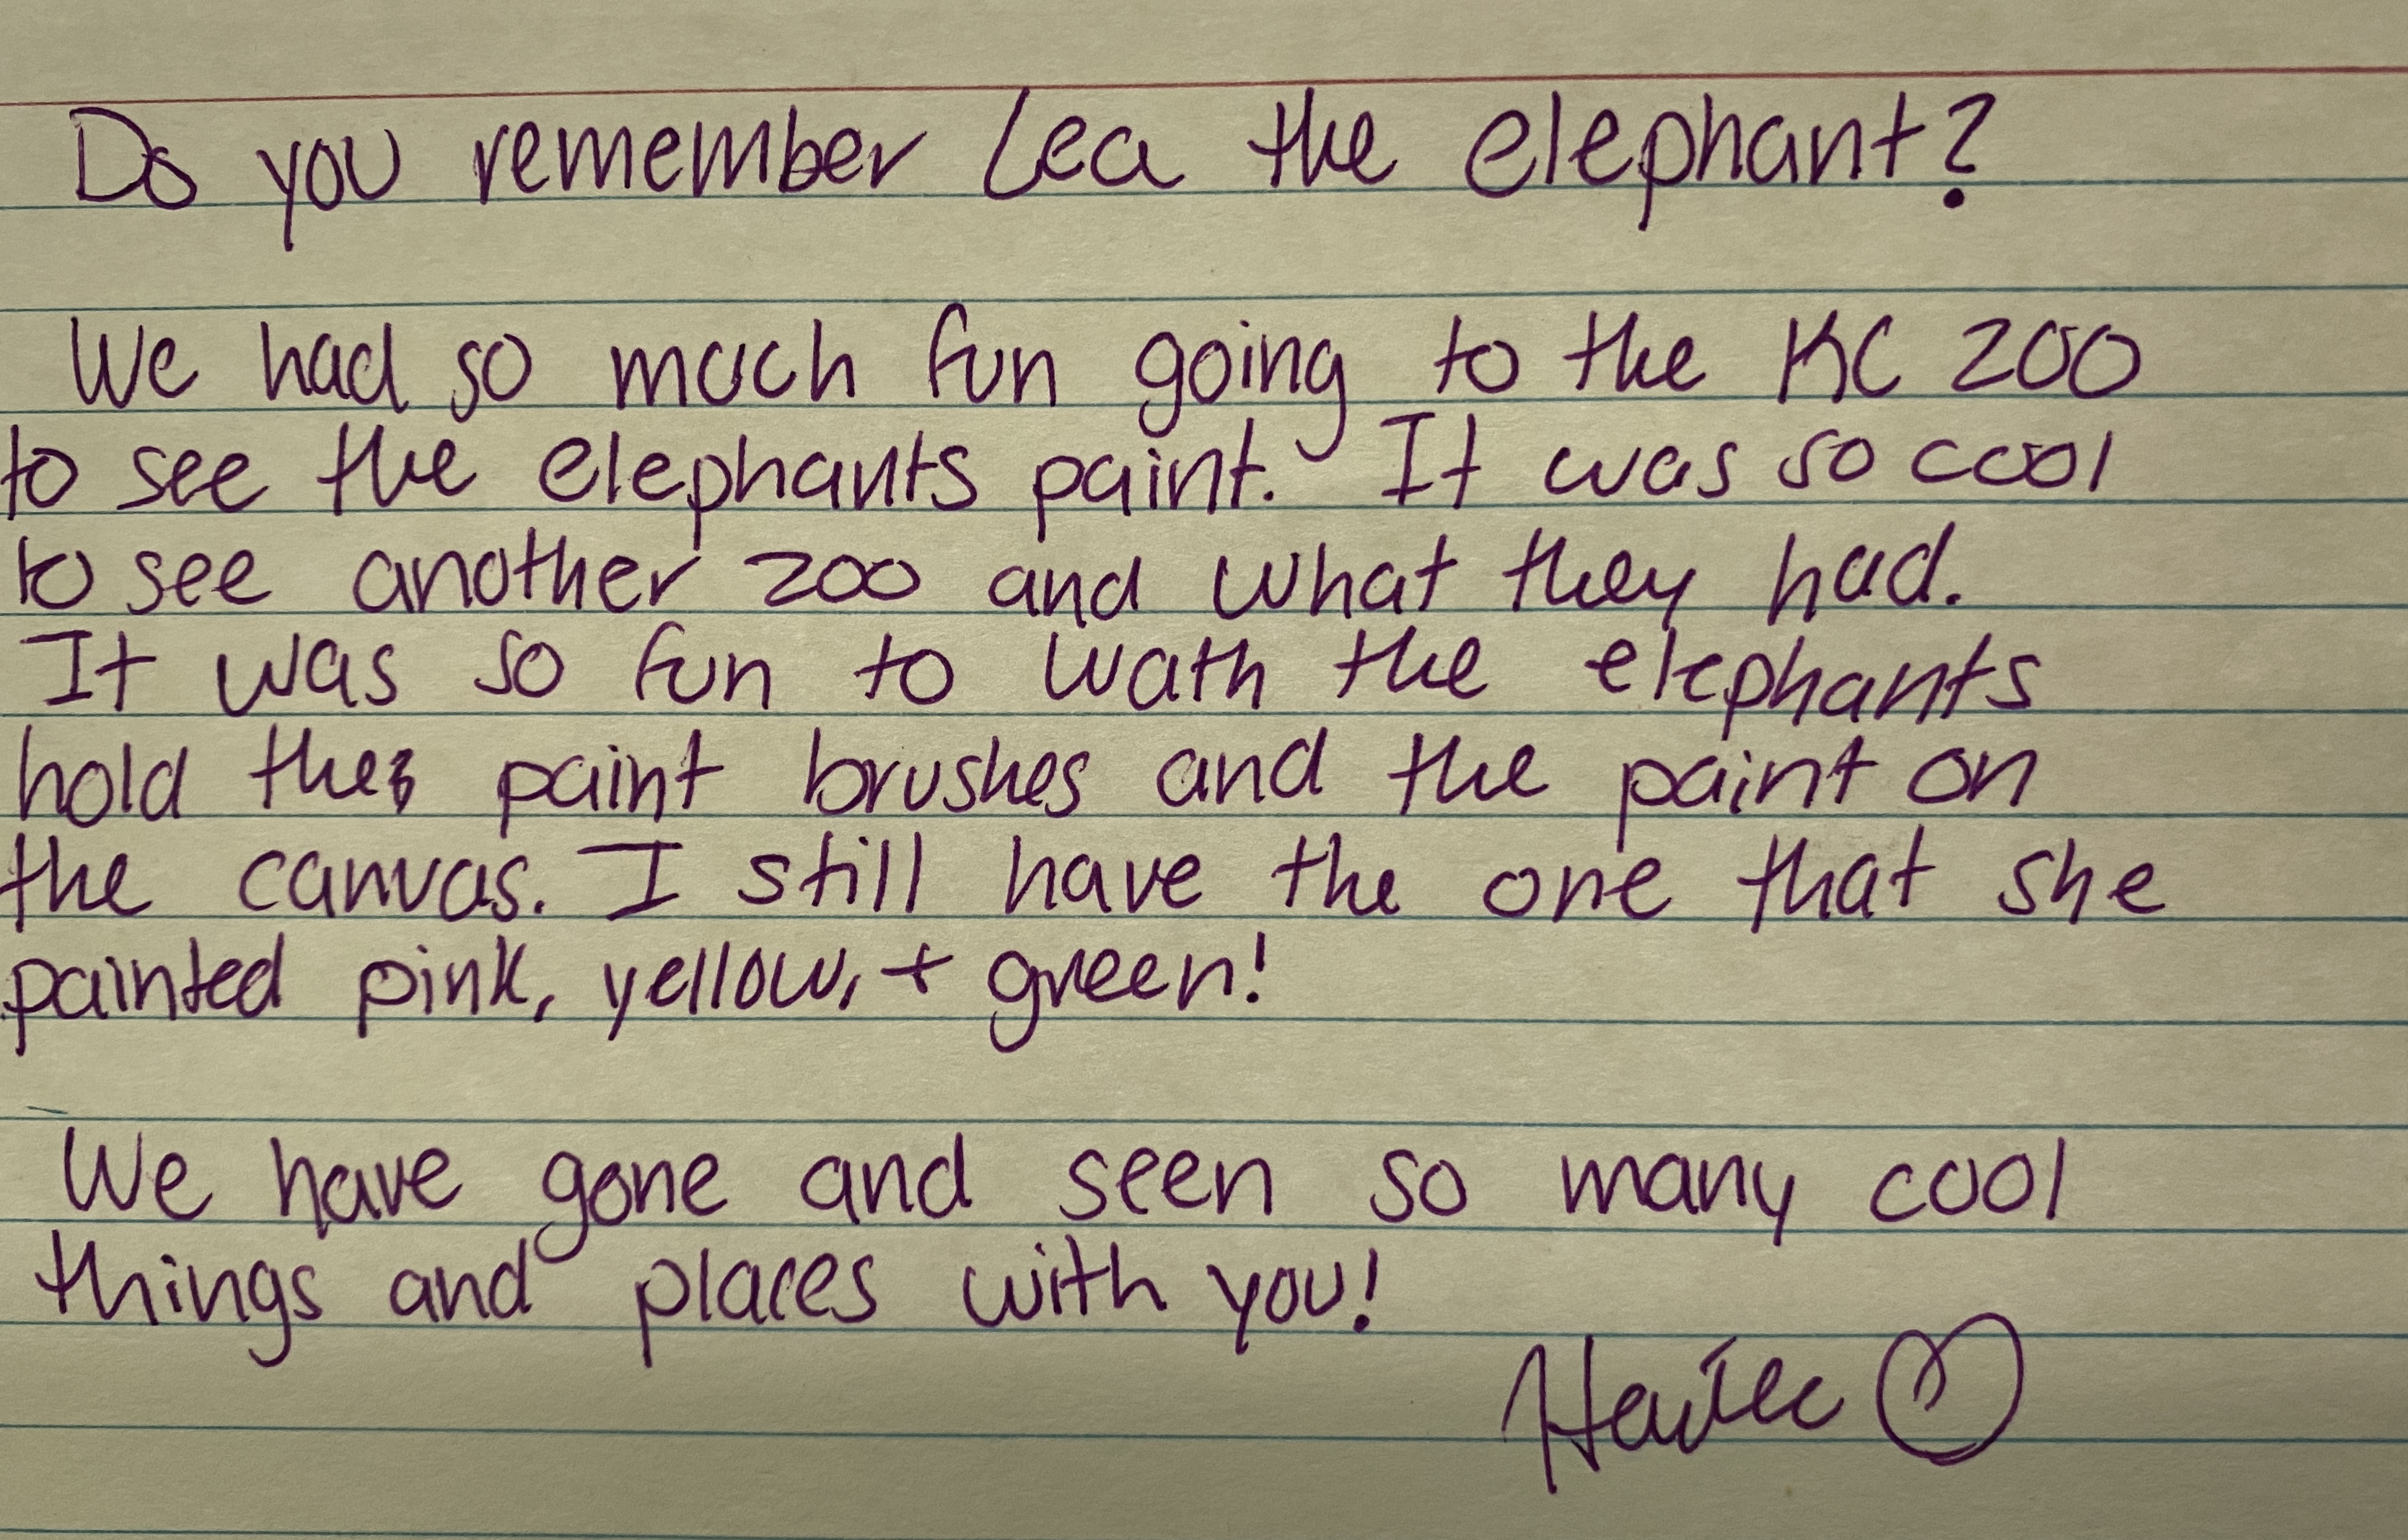 Do you remember Lea the elephant?
We had so much fun going to the KC zoo
to see the elephants paint. It was so cool
to see another zoo and what they had.
It was so fun to wath the elephants
hold the paint brushes and the paint on
the canvas. I still have the one that she
painted pink, yellow, + green!
We have gone and seen so many cool
things and places with you!